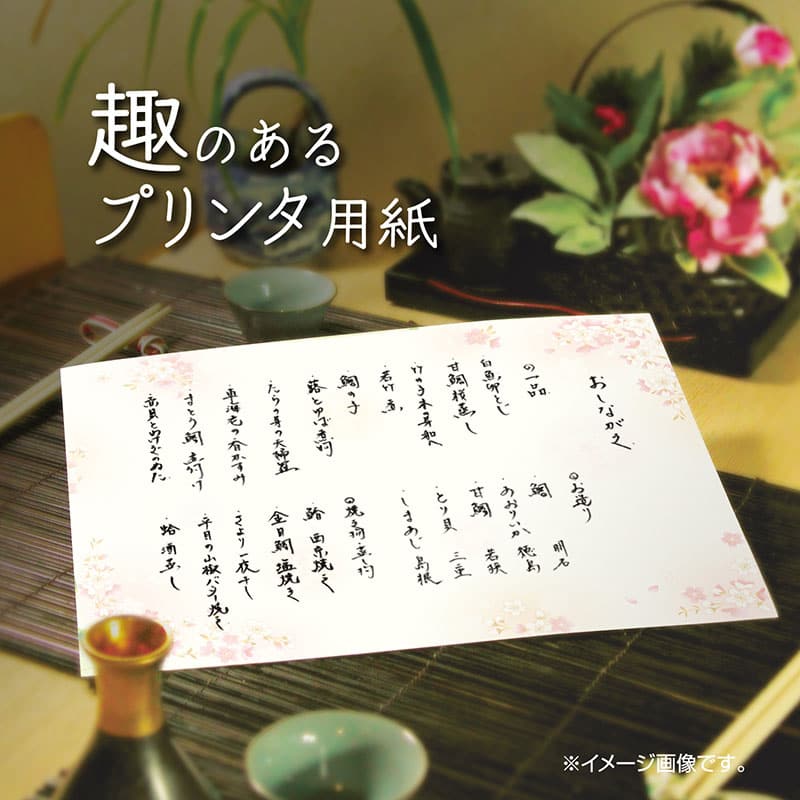 趣のある
プリンタ用紙
おしながき
の一品
白魚卵とじ
甘鯛桜蒸し
竹の子木の芽和え
若竹煮
鯛の子
蕗とゆば煮付
たらの芽の天婦羅
車海老の春がすみ
まとう鯛煮付け
お造り
鯛 明石
あおりいか 徳島
甘鯛 若狭
とり貝 三重
しまあじ 島根
焼き物 煮物
鮨 西京焼き
金目鯛 塩焼き
さより一夜干し
平目の山椒バター焼き
蛤酒蒸し
※イメージ画像です。